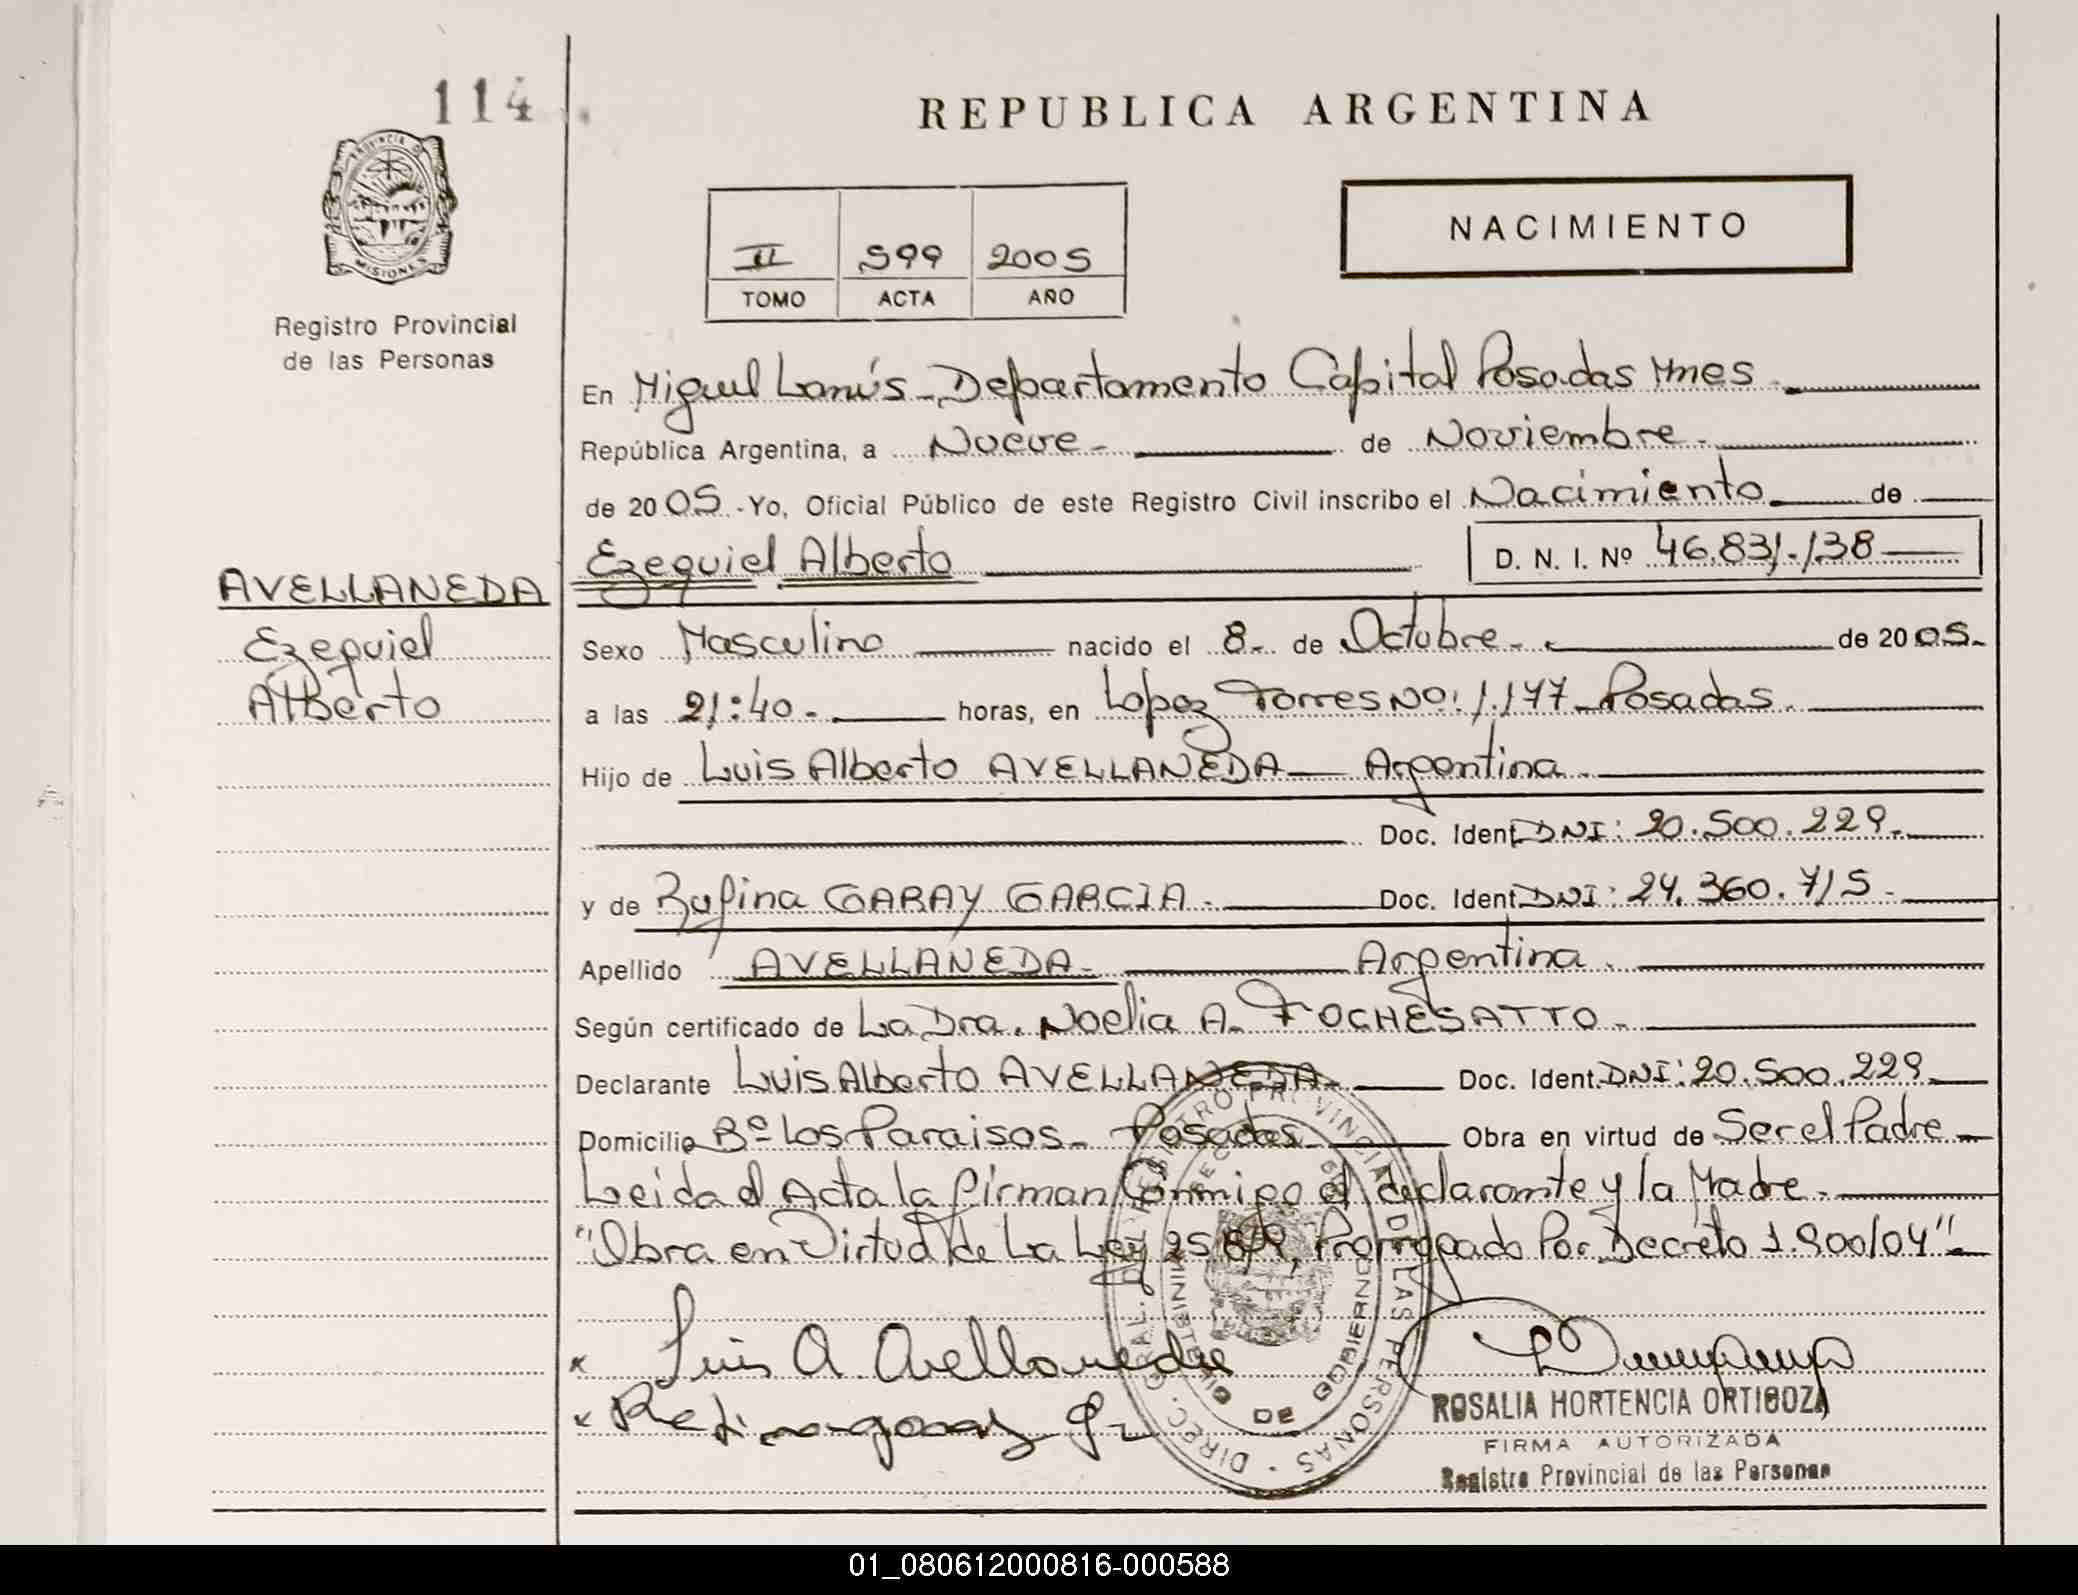 114
REPUBLICA ARGENTINA
PROVINCIA D
MISIONES
Registro Provincial
de las Personas
II 599 2005
TOMO ACTA AÑO
NACIMIENTO
En Miguel Lanús - Departamento Capital Posadas Mnes
República Argentina, a Nueve - de Noviembre -
de 2005 - Yo, Oficial Público de este Registro Civil inscribo el Nacimiento de
Ezequiel Alberto D. N. I. Nº 46.831.138
AVELLANEDA
Ezequiel
Alberto
Sexo Masculino nacido el 8 - de Octubre - de 2005 -
a las 21:40 - horas, en Lopez Torres No: 1.177 - Posadas
Hijo de Luis Alberto AVELLANEDA - Argentina
Doc. Ident. DNI: 20.500.229 -
y de Rufina GARAY GARCIA - Doc. Ident. DNI: 24.360.715 -
Apellido AVELLANEDA - Argentina
Según certificado de La Dra. Noelia A. FOCHESATTO -
Declarante Luis Alberto AVELLANEDA - Doc. Ident. DNI: 20.500.229
Domicilio Bº Los Paraisos - Posadas Obra en virtud de Ser el Padre -
Leida el Acta la firman Conmigo el declarante y la Madre -
"Obra en Virtud de La Ley Prorrogado Por Decreto 1.900/04" -
Luis A. Avellaneda
DIREC. GRAL. DEL REGISTRO PROVINCIAL DE LAS PERSONAS
MINISTERIO DE GOBIERNO
ROSALIA HORTENCIA ORTIGOZA
FIRMA AUTORIZADA
Registro Provincial de las Personas
01_080612000816-000588